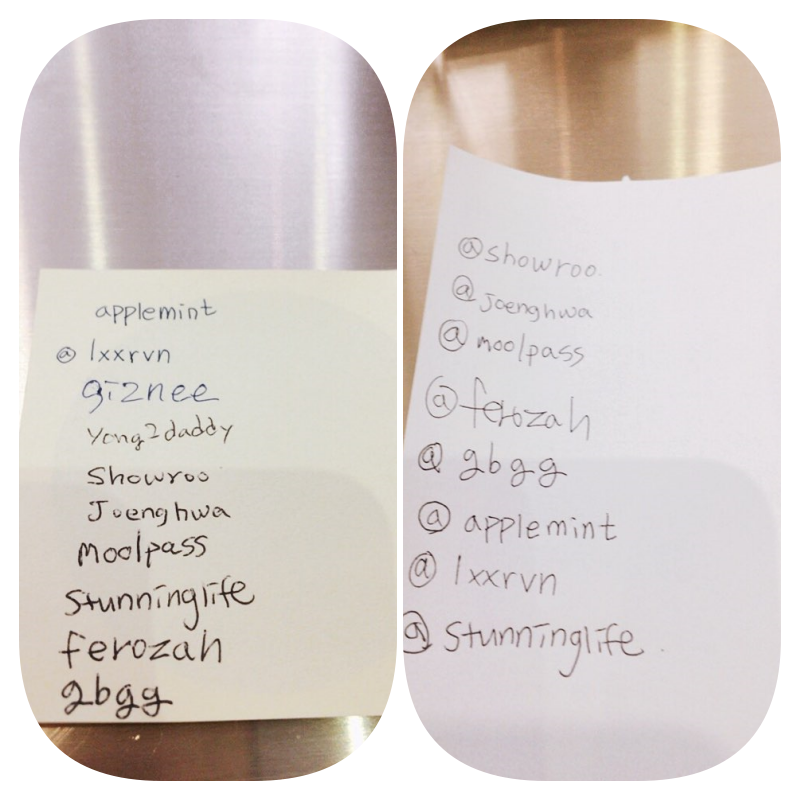 applemint
@ lxxrvn
giznee
Yong2daddy
Showroo
Joenghwa
moolpass
Stunninglife
ferozah
gbgg
@showroo.
@ Joenghwa
@ moolpass
@ ferozah
@ gbgg
@ applemint
@ lxxrvn
@ Stunninglife.